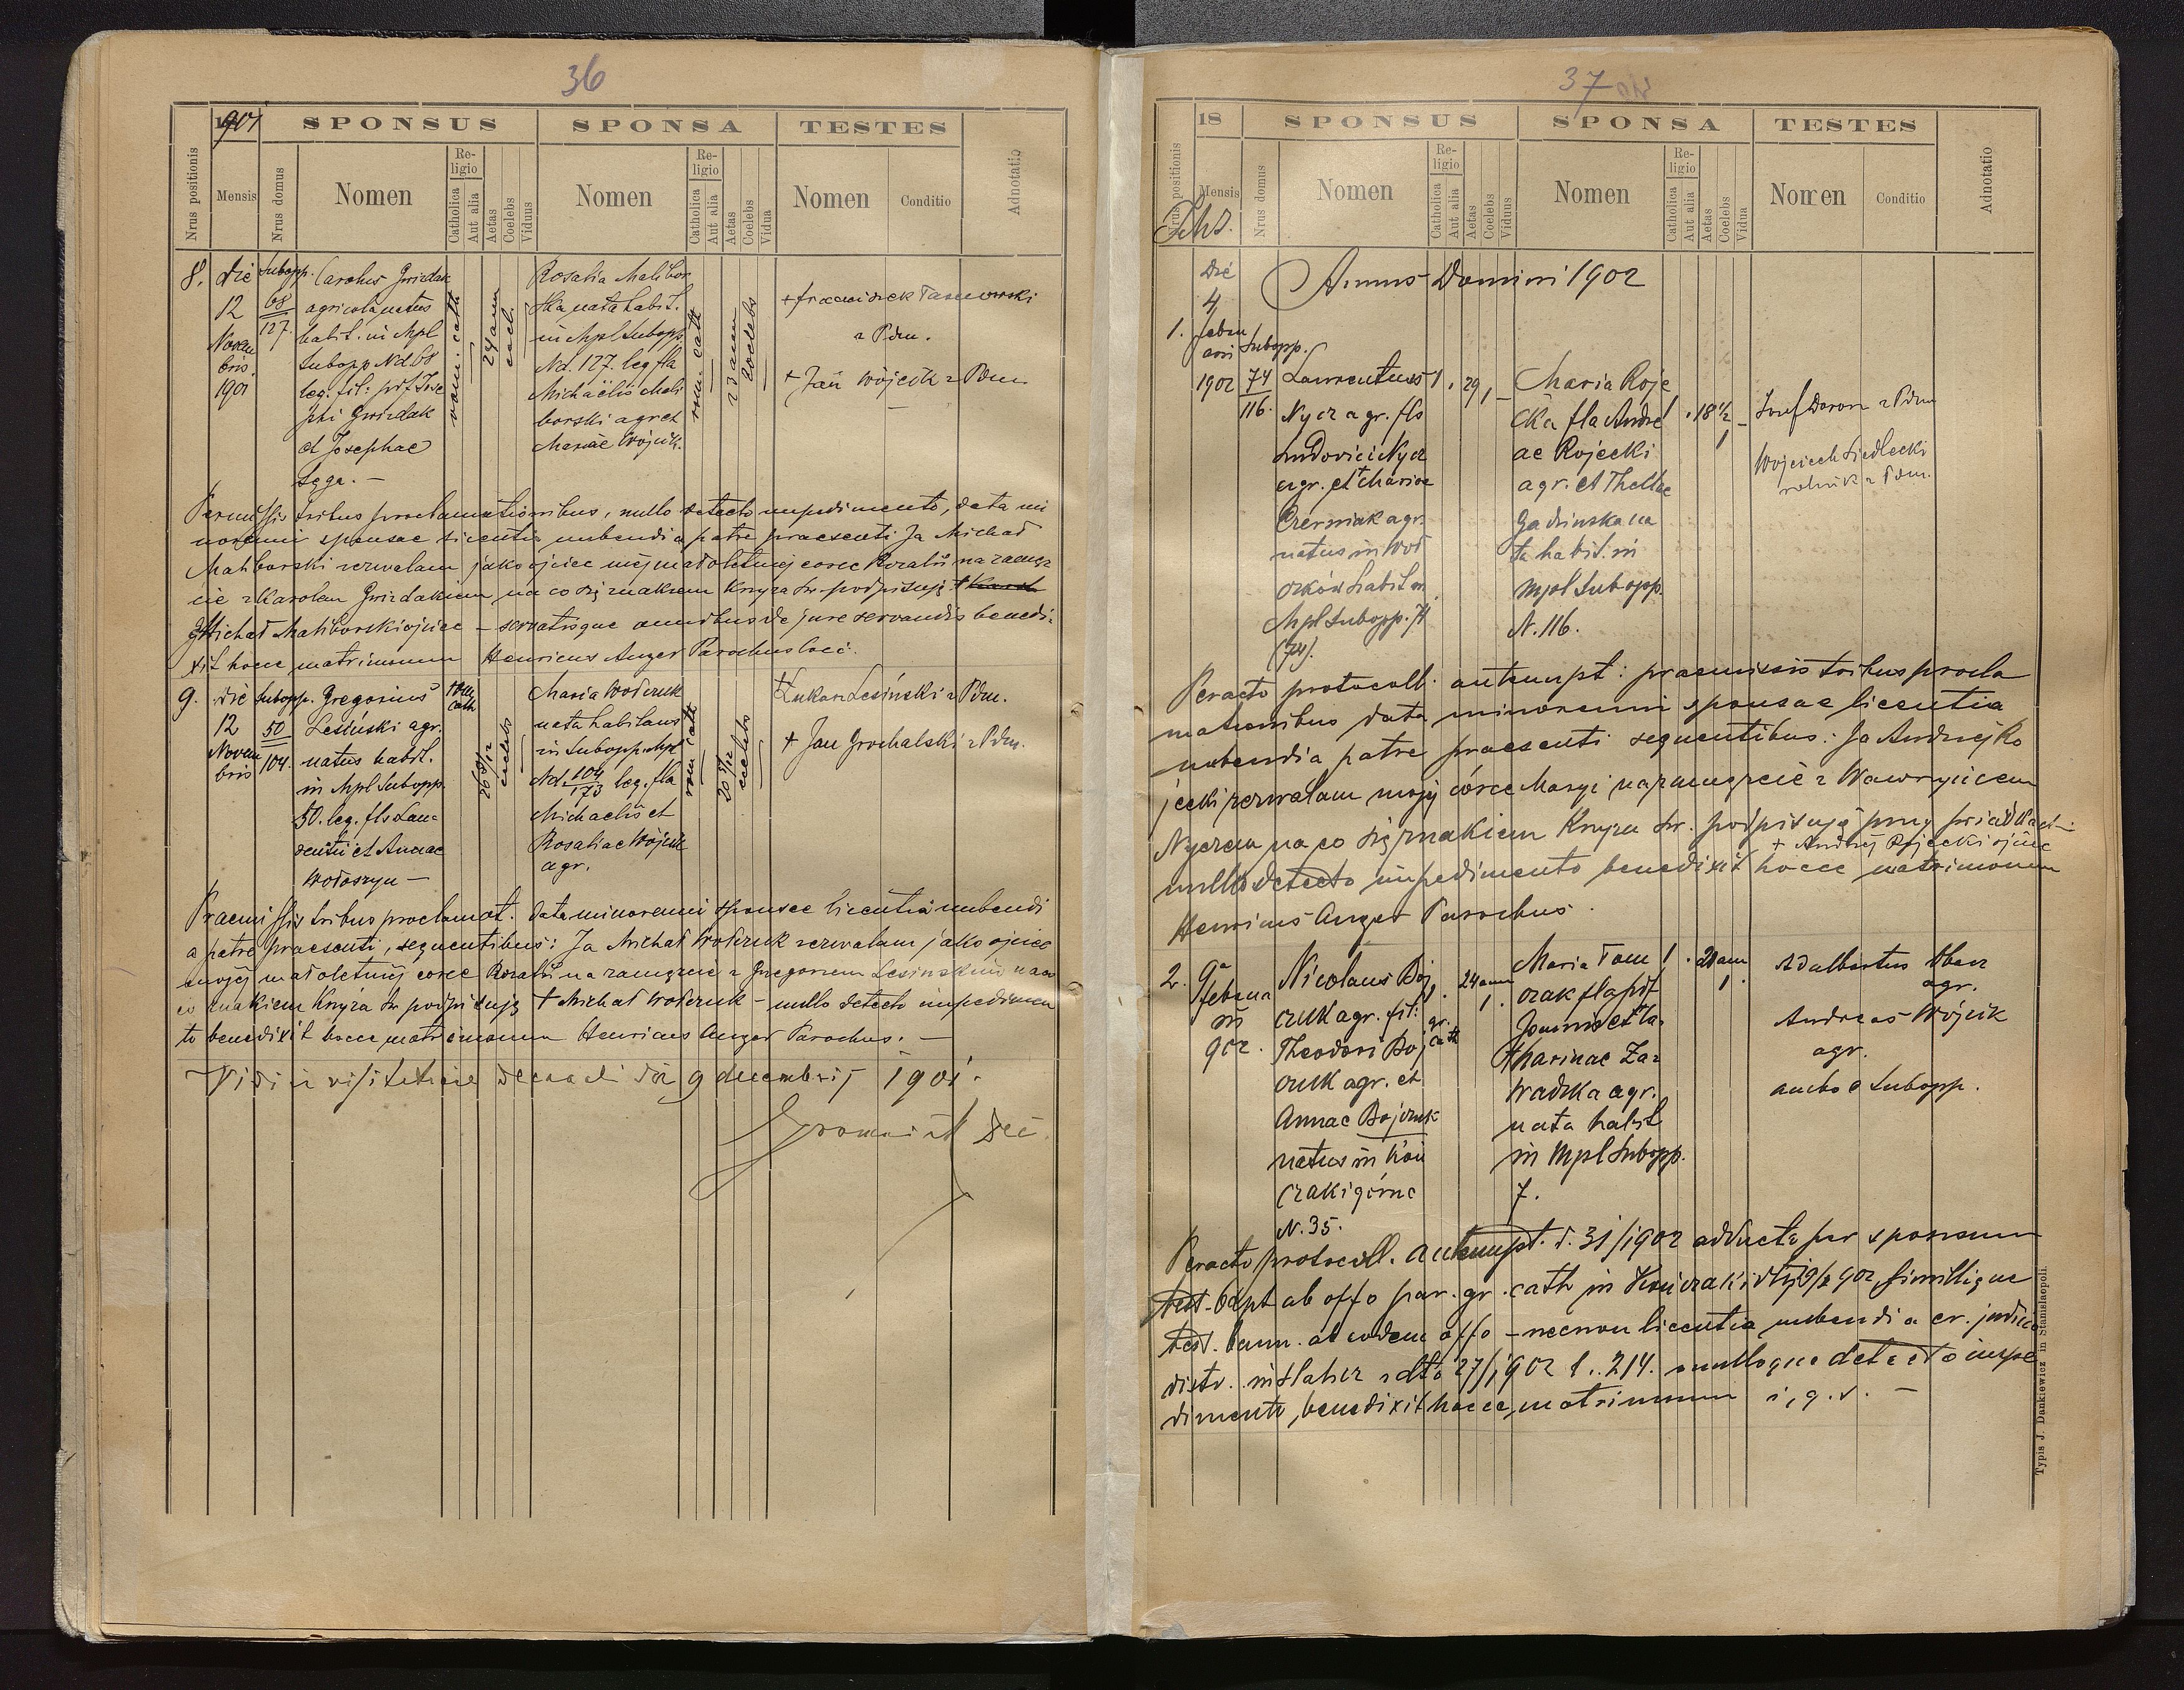 36
1901
SPONSUS
SPONSA
TESTES
Nrus positionis
Mensis
Nrus domus
Nomen
Religio
Catholica
Aut alia
Aetas
Coelebs
Viduus
Nomen
Religio
Catholica
Aut alia
Aetas
Coelebs
Vidua
Nomen
Conditio
Adnotatio
8.
die
12
Novem
bris
1901
Subopp.
68
127.
Carolus Gwizdak
agricola natus
habit. in Mpl
Subopp Nd 68
leg. fil: p̄d̄f. Jose
phi Gwizdak
et Josephae
rom. cath
24 ann
coel.
Rosalia Malibor
ska nata habit.
in Mpl Subopp
Nd. 127. leg fla
Michaëlis Mali
borski agr et
Mariae Wójcik.
rom. cath
coelebs
+ Franciszek
z Pdm.
+ Jan Wójcik z Pdm
Permissis tribus proclamationibus, nullo detecto impedimento, data mi
norenni sponsae licentia nubendi a patre praesenti Ja Michał
Maliborski zezwalam jako ojciec mej małoletniej corce Rozalii na zamęz
cie z Karolem Gwizdakiem na co się znakiem Krzyza Sw podpisuję
Michał Maliborski ojciec – servatisque omnibus de jure servandis benedi-
xit hocce matrimonium Henricus Auger Parochus loci.
9.
die
12
Novem
bris
Subopp.
50
104.
Gregorius
Lesiński agr.
natus habit.
in Mpl Subopp.
50. leg. fls Lau-
rentii et Annae
Wołoszyn –
rom
cath
coelebs
Maria Wołczuk
nata habitans
in Subopp. Mpl
Nd. 104/173 leg. fla
Michaelis et
Rosaliae Wójcik
agr.
rom cath
coelebs
+ Łukasz Lesiński z Pdm.
+ Jan Grochalski z Pdm.
Praemissis tribus proclamat. data minorenni sponsae licentia nubendi
a patre praesenti, sequentibus: Ja Michał Wołczuk zezwalam jako ojciec
mojéj małoletniéj corce Rozalii na zamęzcie z Gregorzem Lesinskim na co
się znakiem Krzyza Sw podpisuję + Michał Wołczuk – nullo detecto impedimen
to benedixit hocce matrimonium Henricus Auger Parochus. –
Vidi in visitatione decanali die 9 decembris 1901.
37
18
SPONSUS
SPONSA
TESTES
Nrus positionis
Mensis
Nrus domus
Nomen
Religio
Catholica
Aut alia
Aetas
Coelebs
Viduus
Nomen
Religio
Catholica
Aut alia
Aetas
Coelebs
Vidua
Nomen
Conditio
Adnotatio
Annus Domini 1902
1.
Die
4
Febru
arii
1902
Subopp.
74
116.
Laurentius
Nycz agr. fls
Ludovici Nycz
agr. et Mariae
Czerniak agr.
natus in Woł
czków habit in
Mpl Subopp. 74
(74).
29
Maria Roje
cka fla Andre
ae Rojecki
agr. et Theklae
Gadzinska na
ta habit. in
Mpl Subopp.
N. 116.
18½
Josef Doron z Pdm
Wojciech Siedlecki
rolnik z Pdm.
Peracto protocoll. antenupt: praemissis tribus procla
mationibus data minorenni sponsae licentia
nubendi a patre praesenti sequentibus: Ja Andrzej Ro
jecki zezwalam mojéj córce Maryi na zamęzcie z Wawrzyńcem
Nyczem na co się znakiem Krzyza Sw. podpisuję przy świadkach
+ Andrzéj Rojecki ojciec
nullo detecto impedimento benedixit hocce matrimonium
Henricus Auger Parochus.
2.
9a
februa
rii
902.
Nicolaus Boj
czuk agr. fil:
Theodori Boj
czuk agr. et
Annae Bojczuk
natus in Koń
czaki górne
N. 35.
gr.
cath
24 ann
Maria Tom
czak fla p̄d̄f
Joannis et Ca-
tharinae Za-
wadzka agr.
nata habit
in Mpl Subopp.
7.
21 ann
Adalbertus
agr.
Andreas Wójcik
agr.
ambo e Subopp.
Peracto protocoll. antenupt. d. 31/1902 adducto per sponsum
test. bapt ab offo par. gr. cath in Kończaki similique
test. bann. ab eodem offo – necnon licentia nubendi a cr. judicio
distr. in Halicz ddto 27/1902 l. 214. nulloque detecto impe
dimento, benedixit hocce matrimonium i, q. s. –
Typis J. Dankiewicz in Stanislaopoli.